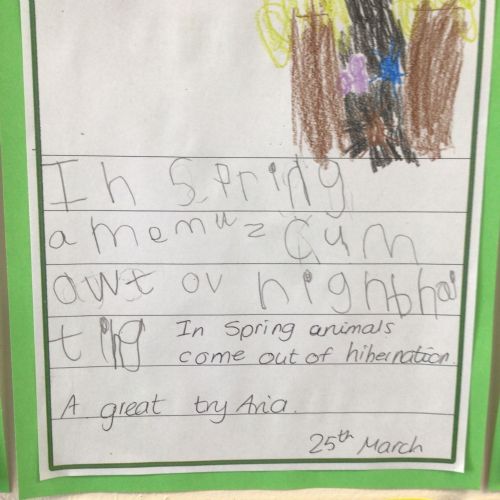 In Spring
amemuz Cum
awt ov highbhai
ting In Spring animals
come out of hibernation
A great try Aria.
25th March